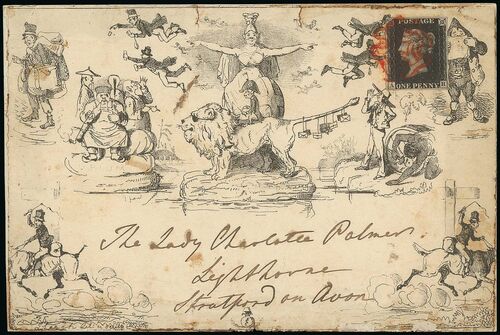 POSTAGE
ONE PENNY
The Lady Charlotte Palmer
Lighthorne
Stratford on Avon